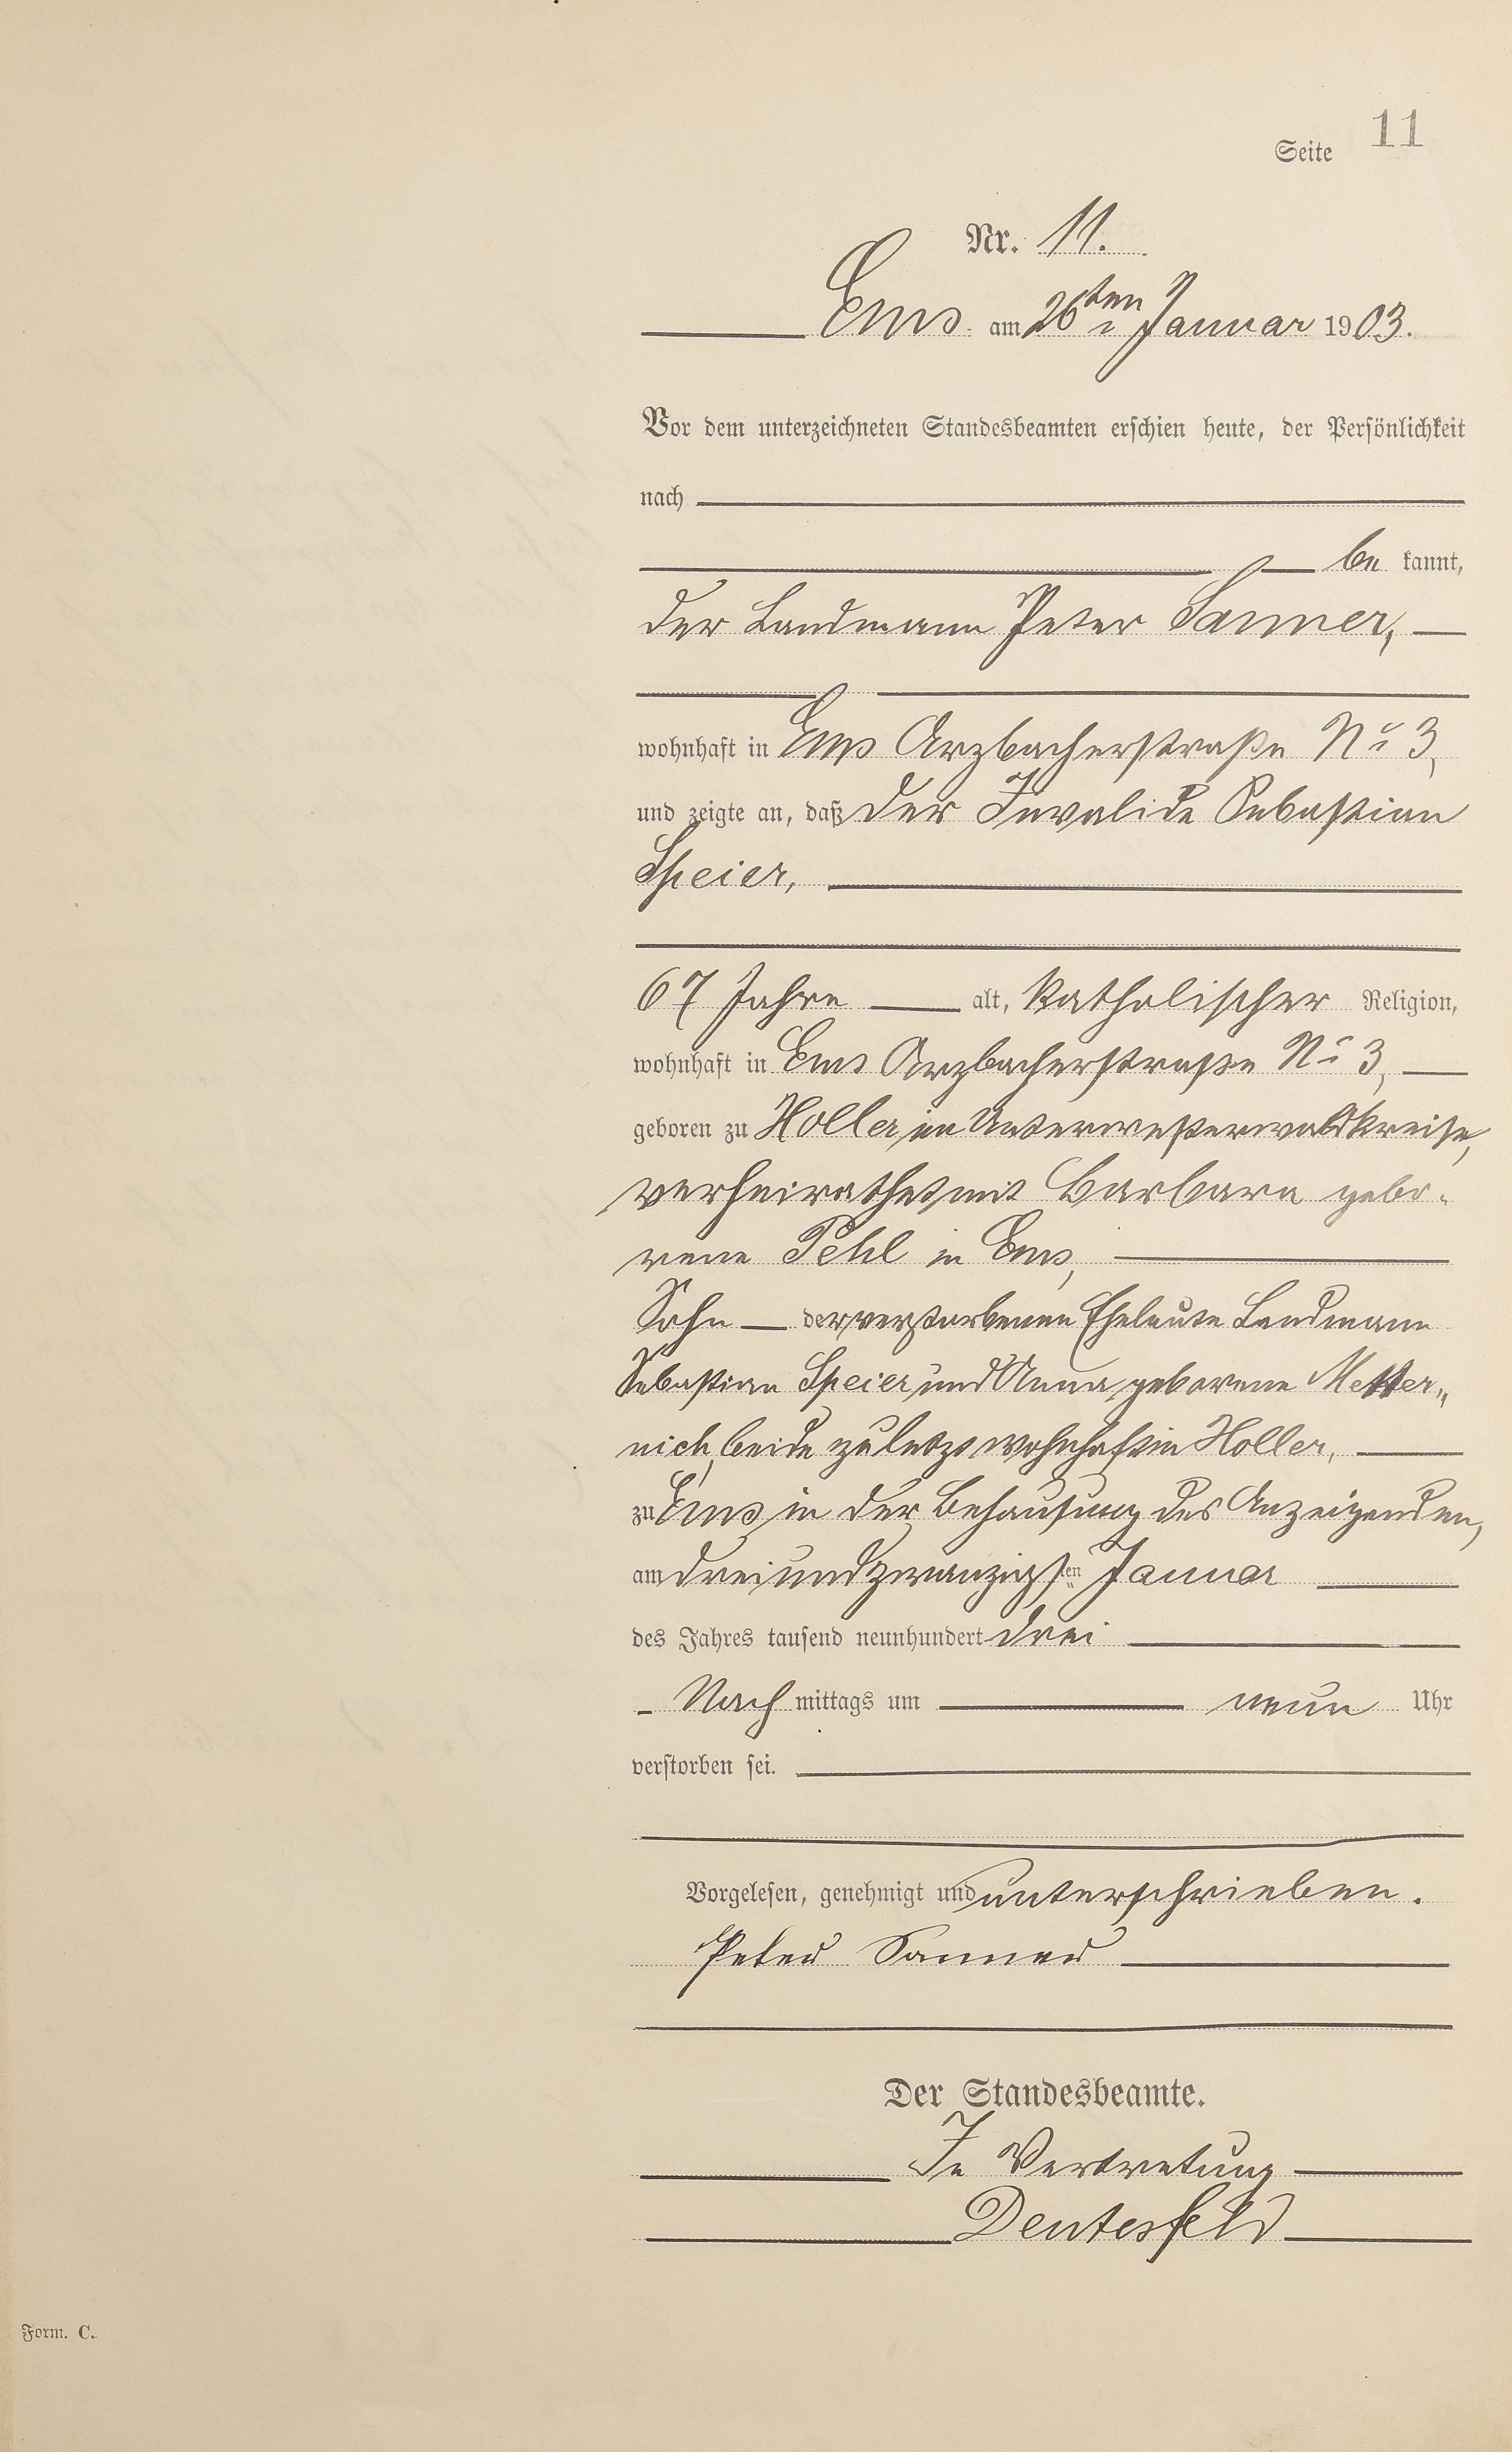 Seite 11
Nr. 11.
Ems am 26ten Januar 1903.
Vor dem unterzeichneten Standesbeamten erschien heute, der Persönlichkeit
nach
be kannt,
der Landmann Peter Sanner,
wohnhaft in Ems Arzbacherstraße No 3,
und zeigte an, daß der Invalide Sebastian
Speier,
67 Jahre alt, katholischer Religion,
wohnhaft in Ems Arzbacherstraße No 3,
geboren zu Holler im Unterwesterwaldkreise,
verheirathet mit Barbara gebo-
rene Pehl in Ems,
Sohn der verstorbenen Eheleute Landmann
Sebastian Speier und Anna geborene Metter-
nich, beide zuletzt wohnhaft in Holler,
zu Ems in der Behausung des Anzeigenden,
am dreiundzwanzigsten Januar
des Jahres tausend neunhundert drei
Nach mittags um neun Uhr
verstorben sei.
Vorgelesen, genehmigt und unterschrieben.
Peter Sanner
Der Standesbeamte.
In Vertretung
Deutesfeld
Form. C.